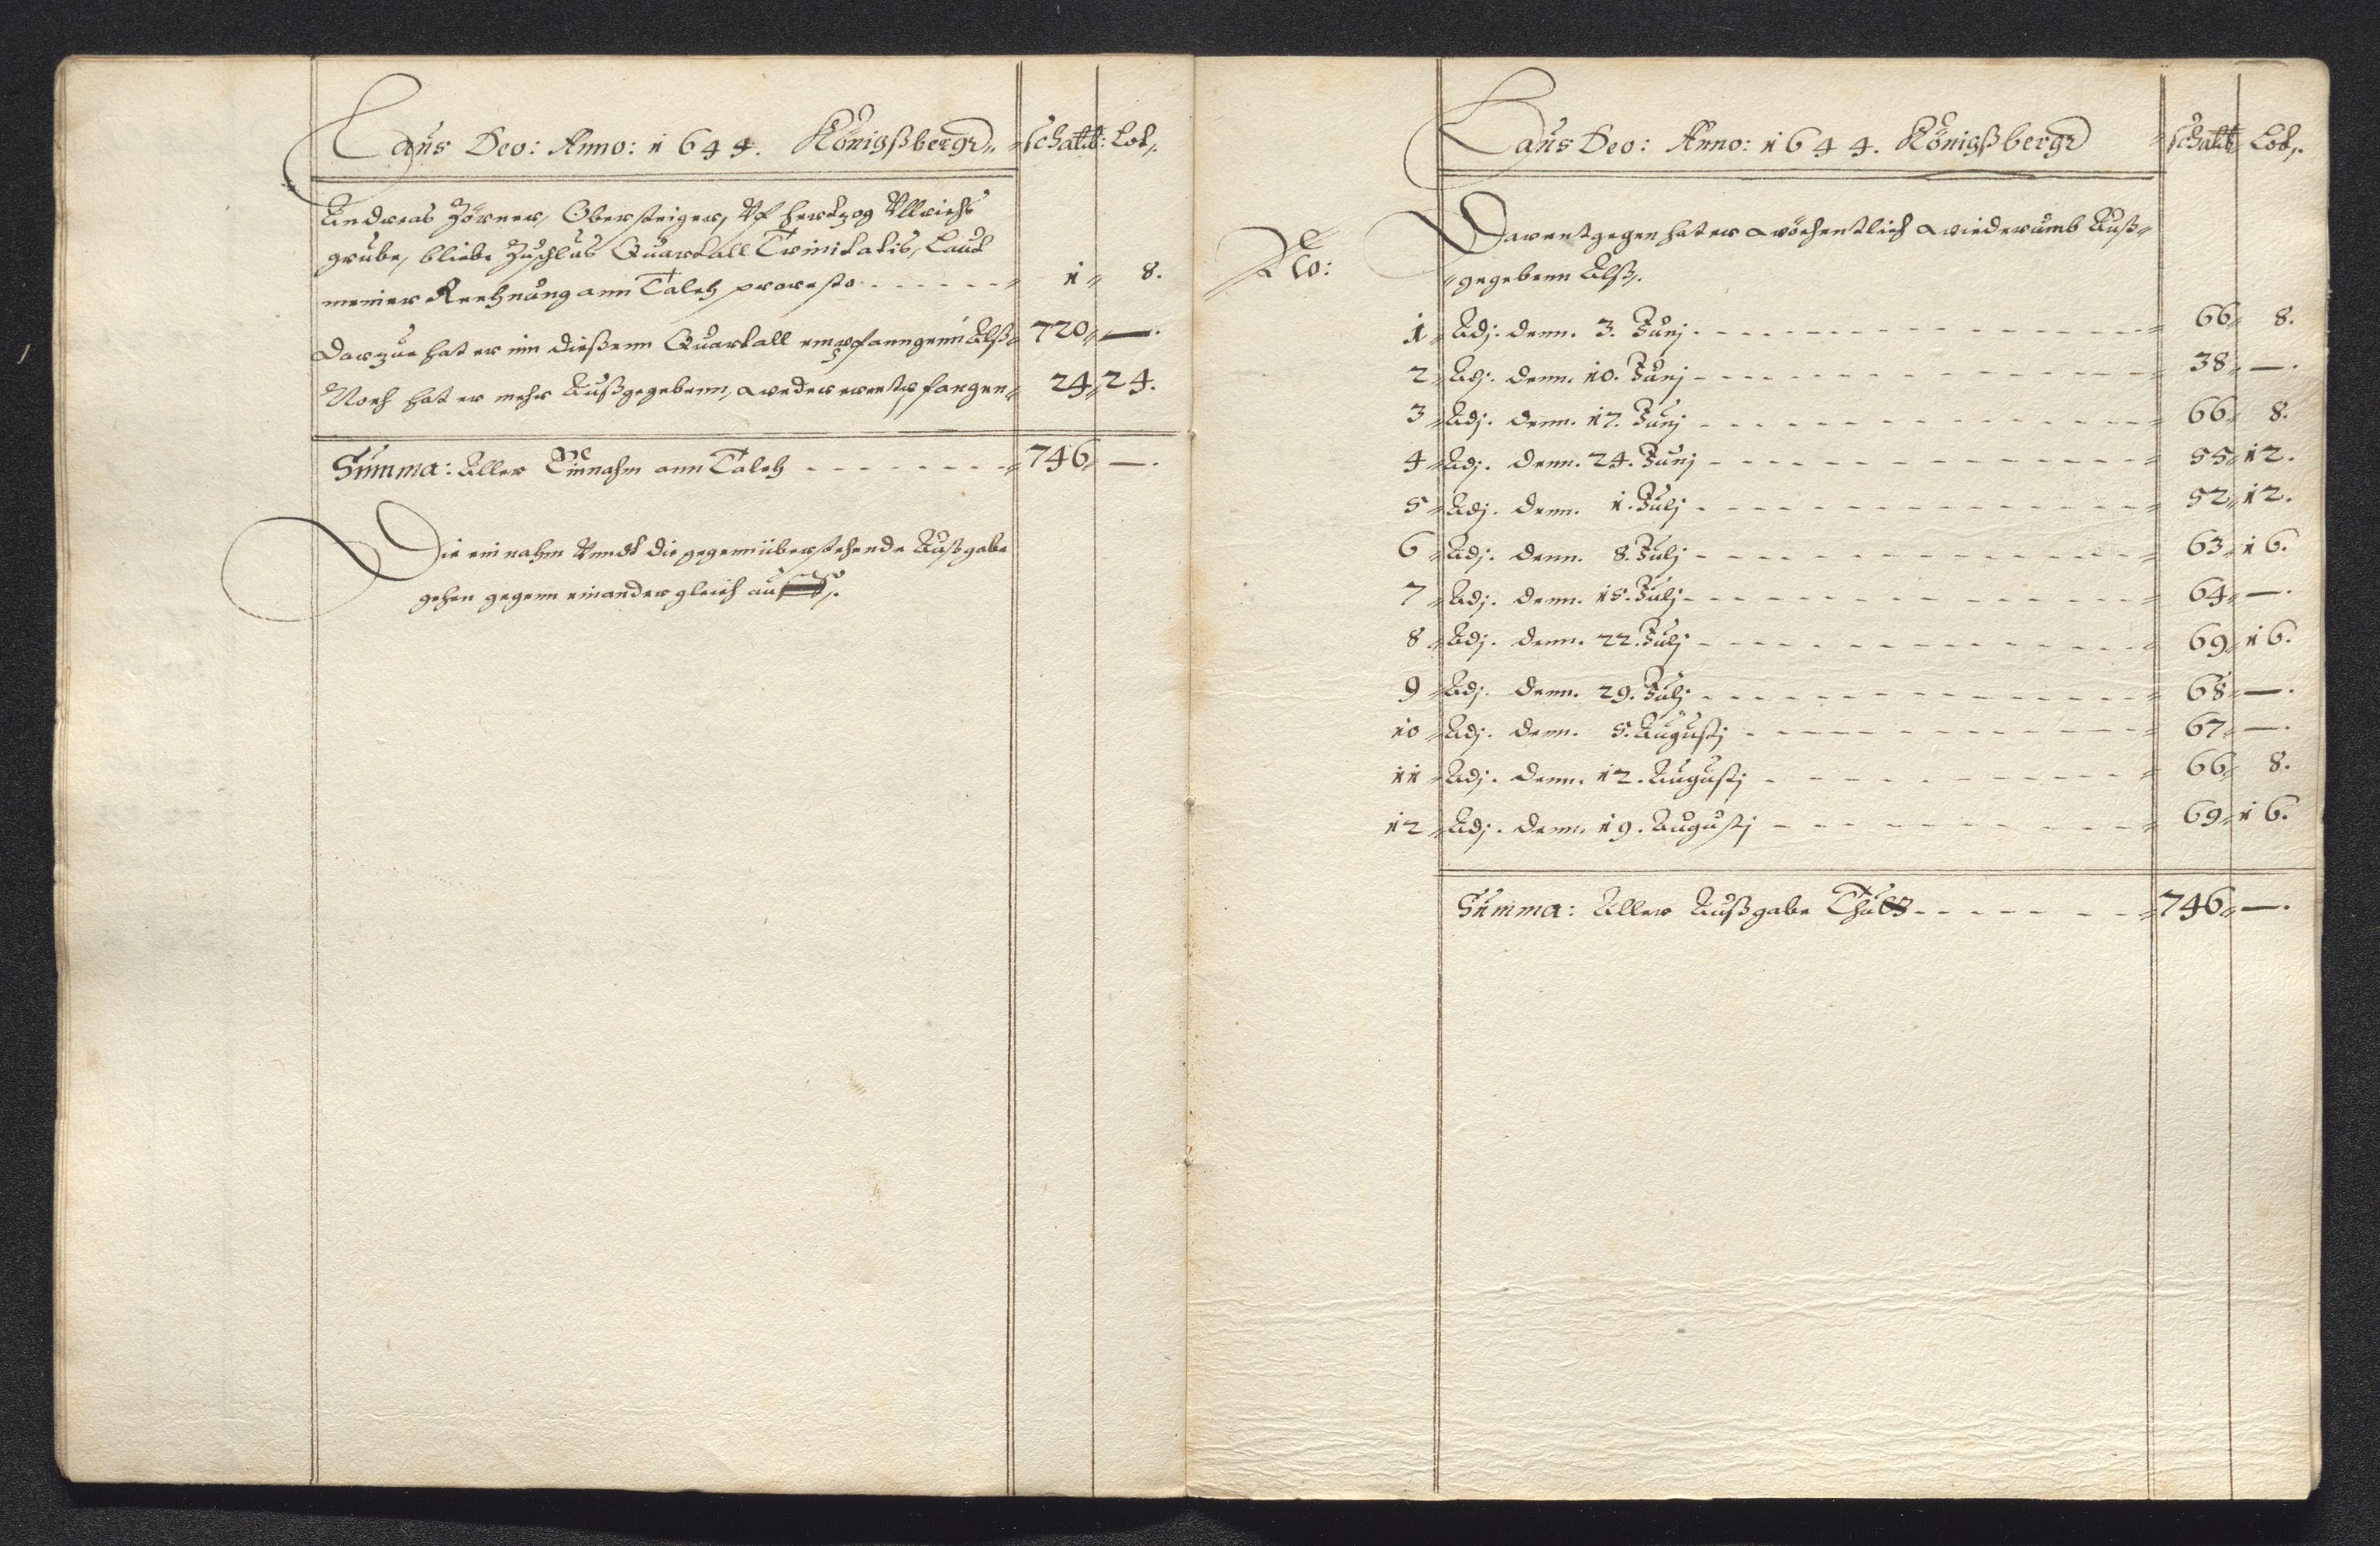 Laus Deo: Anno: 1644. Königßbergk Schaltt: Lod,
Andreas Zörner, Obersteiger, Vf Hertzog Vllrichs
grube, bliebe Zuschlus Quartall Trinitatis, Laut
meiner Rechnung ann Talch pro resto 1 8.
darzue hat er inn dießenn Quartall empfanngenn Alß 720 —.
Noch hat er mehr Außgegebenn, weder er entpfangen 24 24.
Summa: Aller Einnahm ann Talch 746 —.
Die einnahm Vnndt die gegennüberstehende Außgabe
gehen gegenn einander gleich auf.
Laus Deo: Anno: 1644. Königßbergk Schaltt Lod,.
Darentgegen hat er wöchentlich wiederumb Auß-
No:
gegebenn Alß,.
1 Adj. denn. 3. Junj 66 8.
2 Adj. denn. 10. Junj 38 —.
3 Adj. denn. 17. Junj 66 8.
4 Adj. denn. 24. Junj 55 12.
5 Adj. denn. 1. Julj 52 12.
6 Adj. denn. 8. Julj 63 16.
7 Adj. denn. 15. Julj 64 —.
8 Adj. denn. 22. Julj 69 16.
9 Adj. denn. 29. Julj 68 —.
10 Adj. denn. 5. Augustj 67 —.
11 Adj. denn. 12. Augustj 66 8.
12 Adj. denn. 19. Augustj 69 16.
Summa: Aller Außgabe Thutt 746 —.